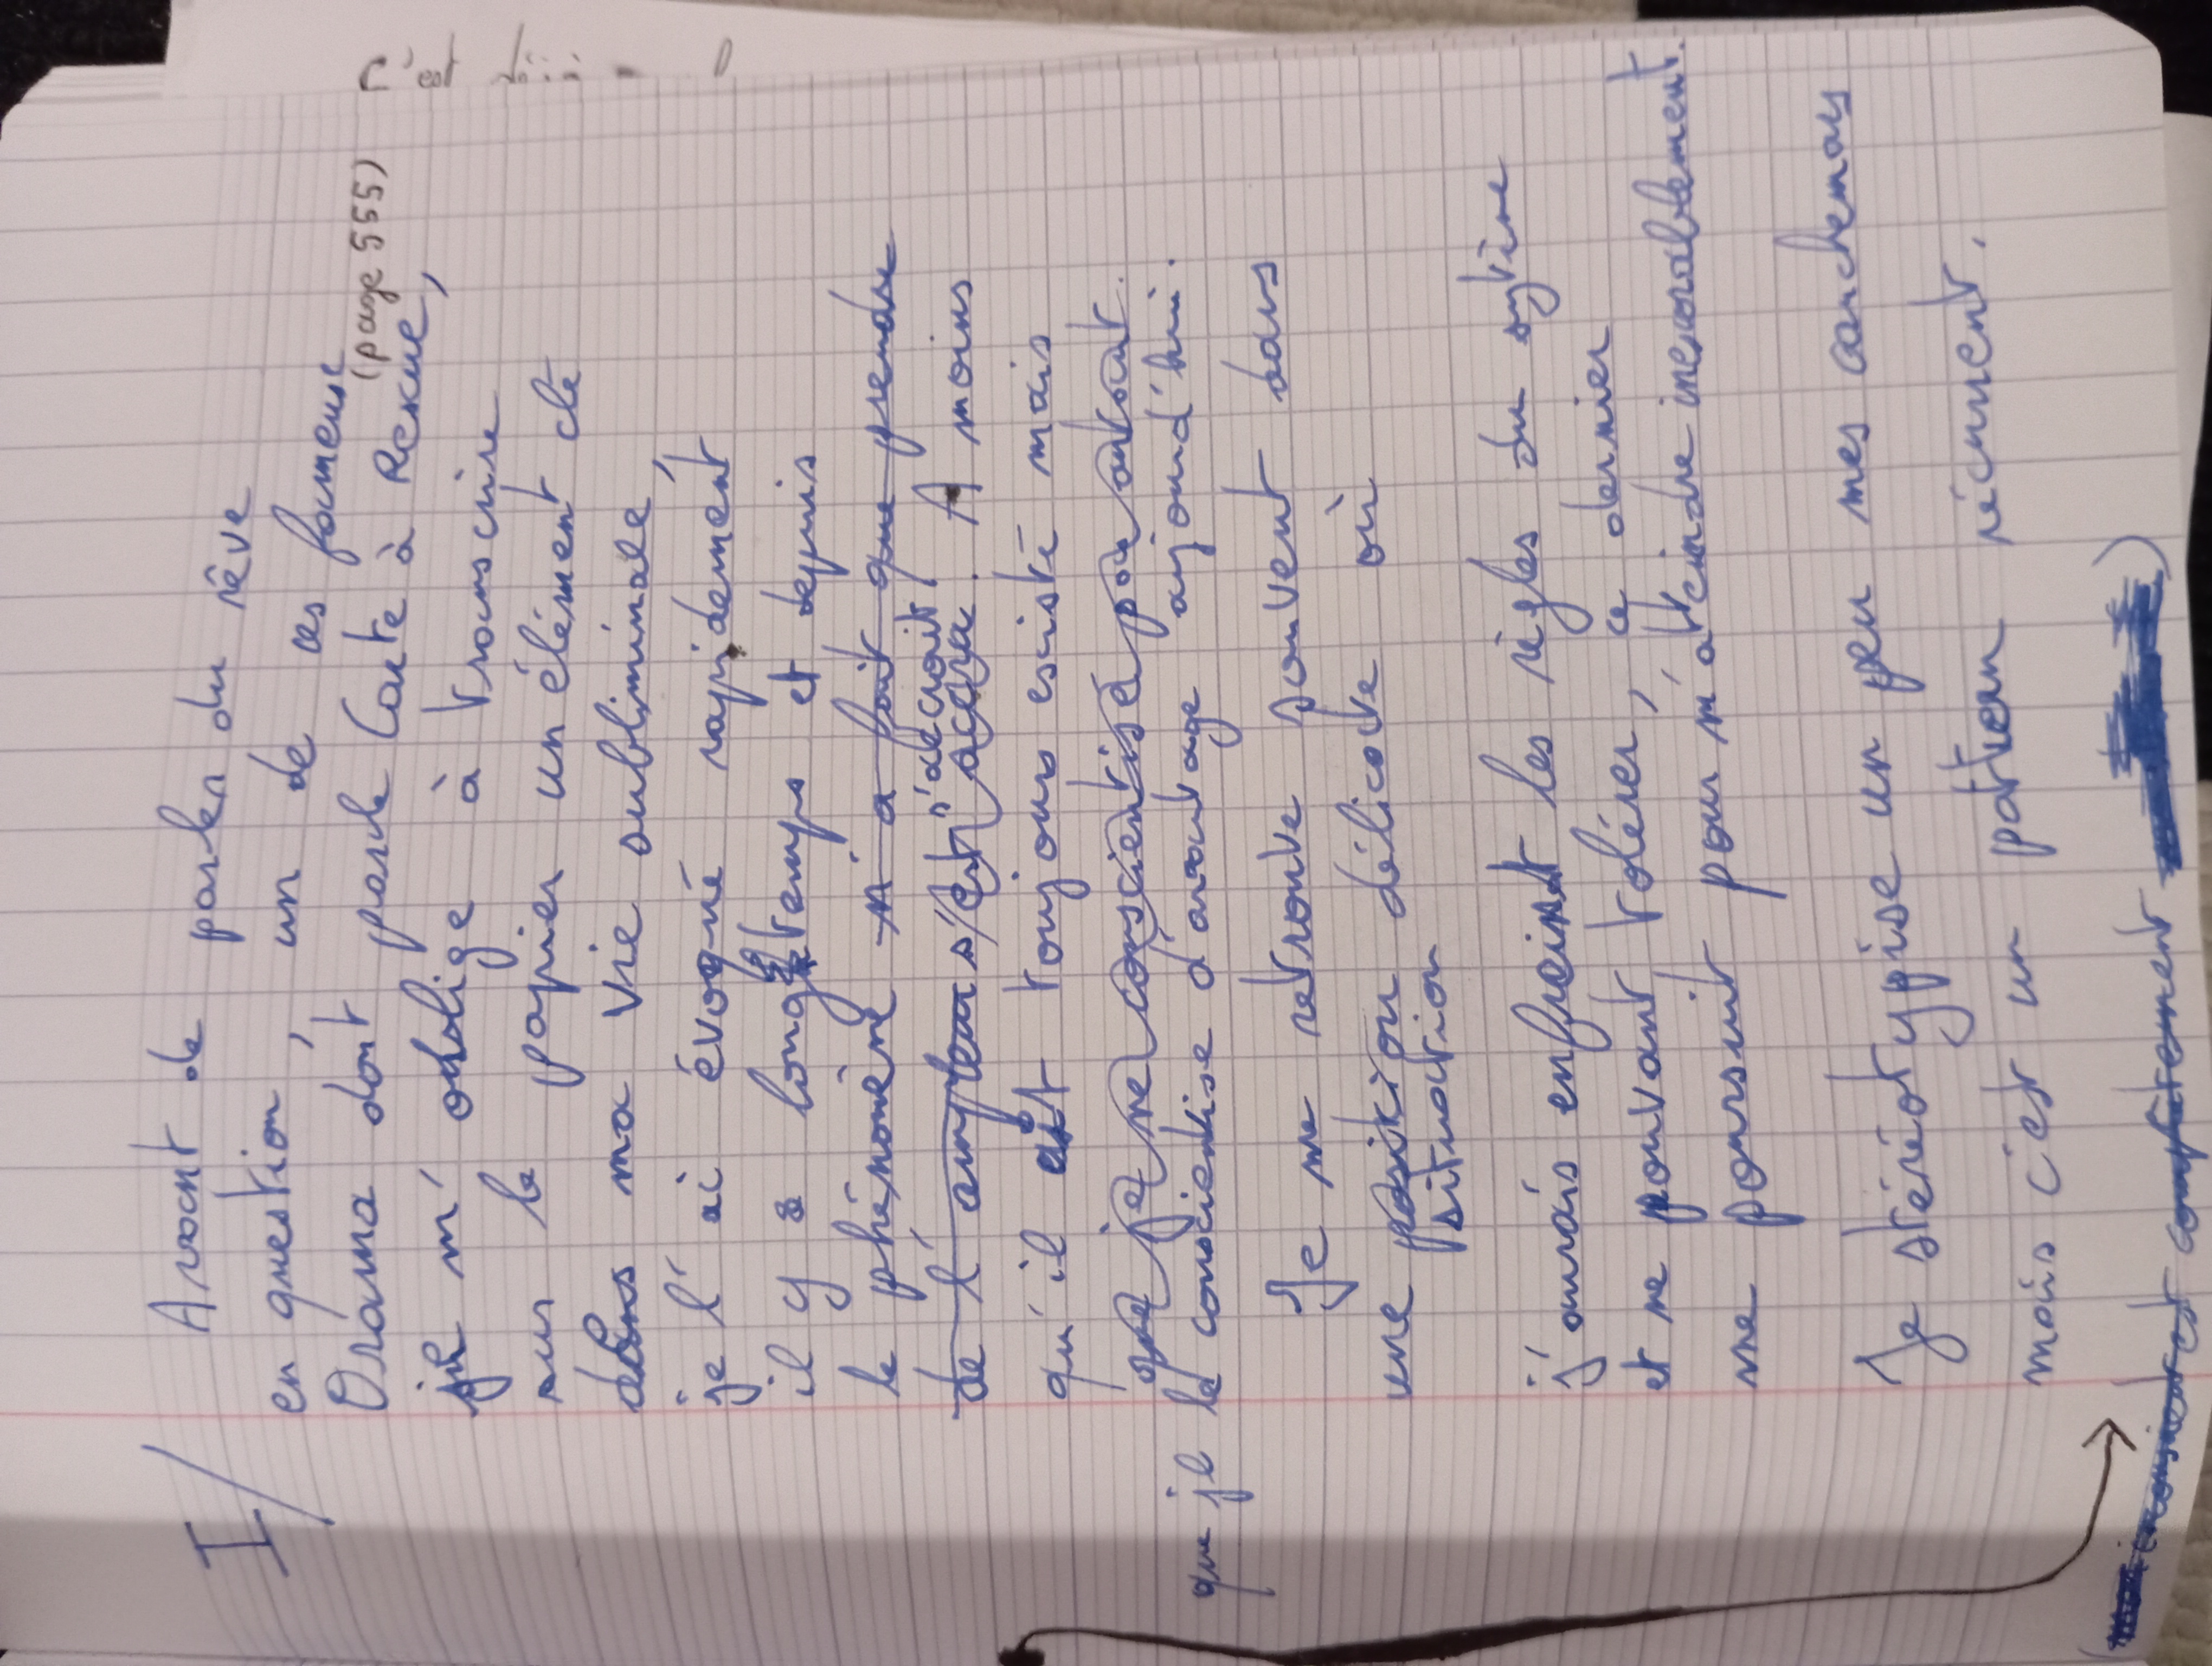 I/ Avant de parler du rêve
en question, un de ces fameux
Orama dont parle Carte à Rexue,
(page 555)
je m'oblige à transcrire
sur le papier un élément clé
de ma vie subliminale,
je l'ai évoqué rapidement
il y a longtemps et depuis
le phénomène n'a fait que prendre
de l'ampleur s'est accru. A moins
s'accroit
qu'il ait toujours existé mais
que je ne conscientise pas autant.
que je le conscientise d'avantage aujourd'hui.
Je me retrouve souvent dans
une position délicate où
situation
j'aurais enfreint les règles du sytème
et ne pouvant tolérer, ce dernier
me poursuit pour m'atteindre inexorablement.
Je stéréotypise un peu mes cauchemars
mais c'est un pattern récurrent.
(mon inconscient est complètement )
C'est